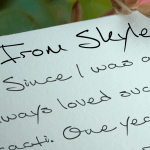 From Skyle
Since I was a
always loved suc
cacti. One yea